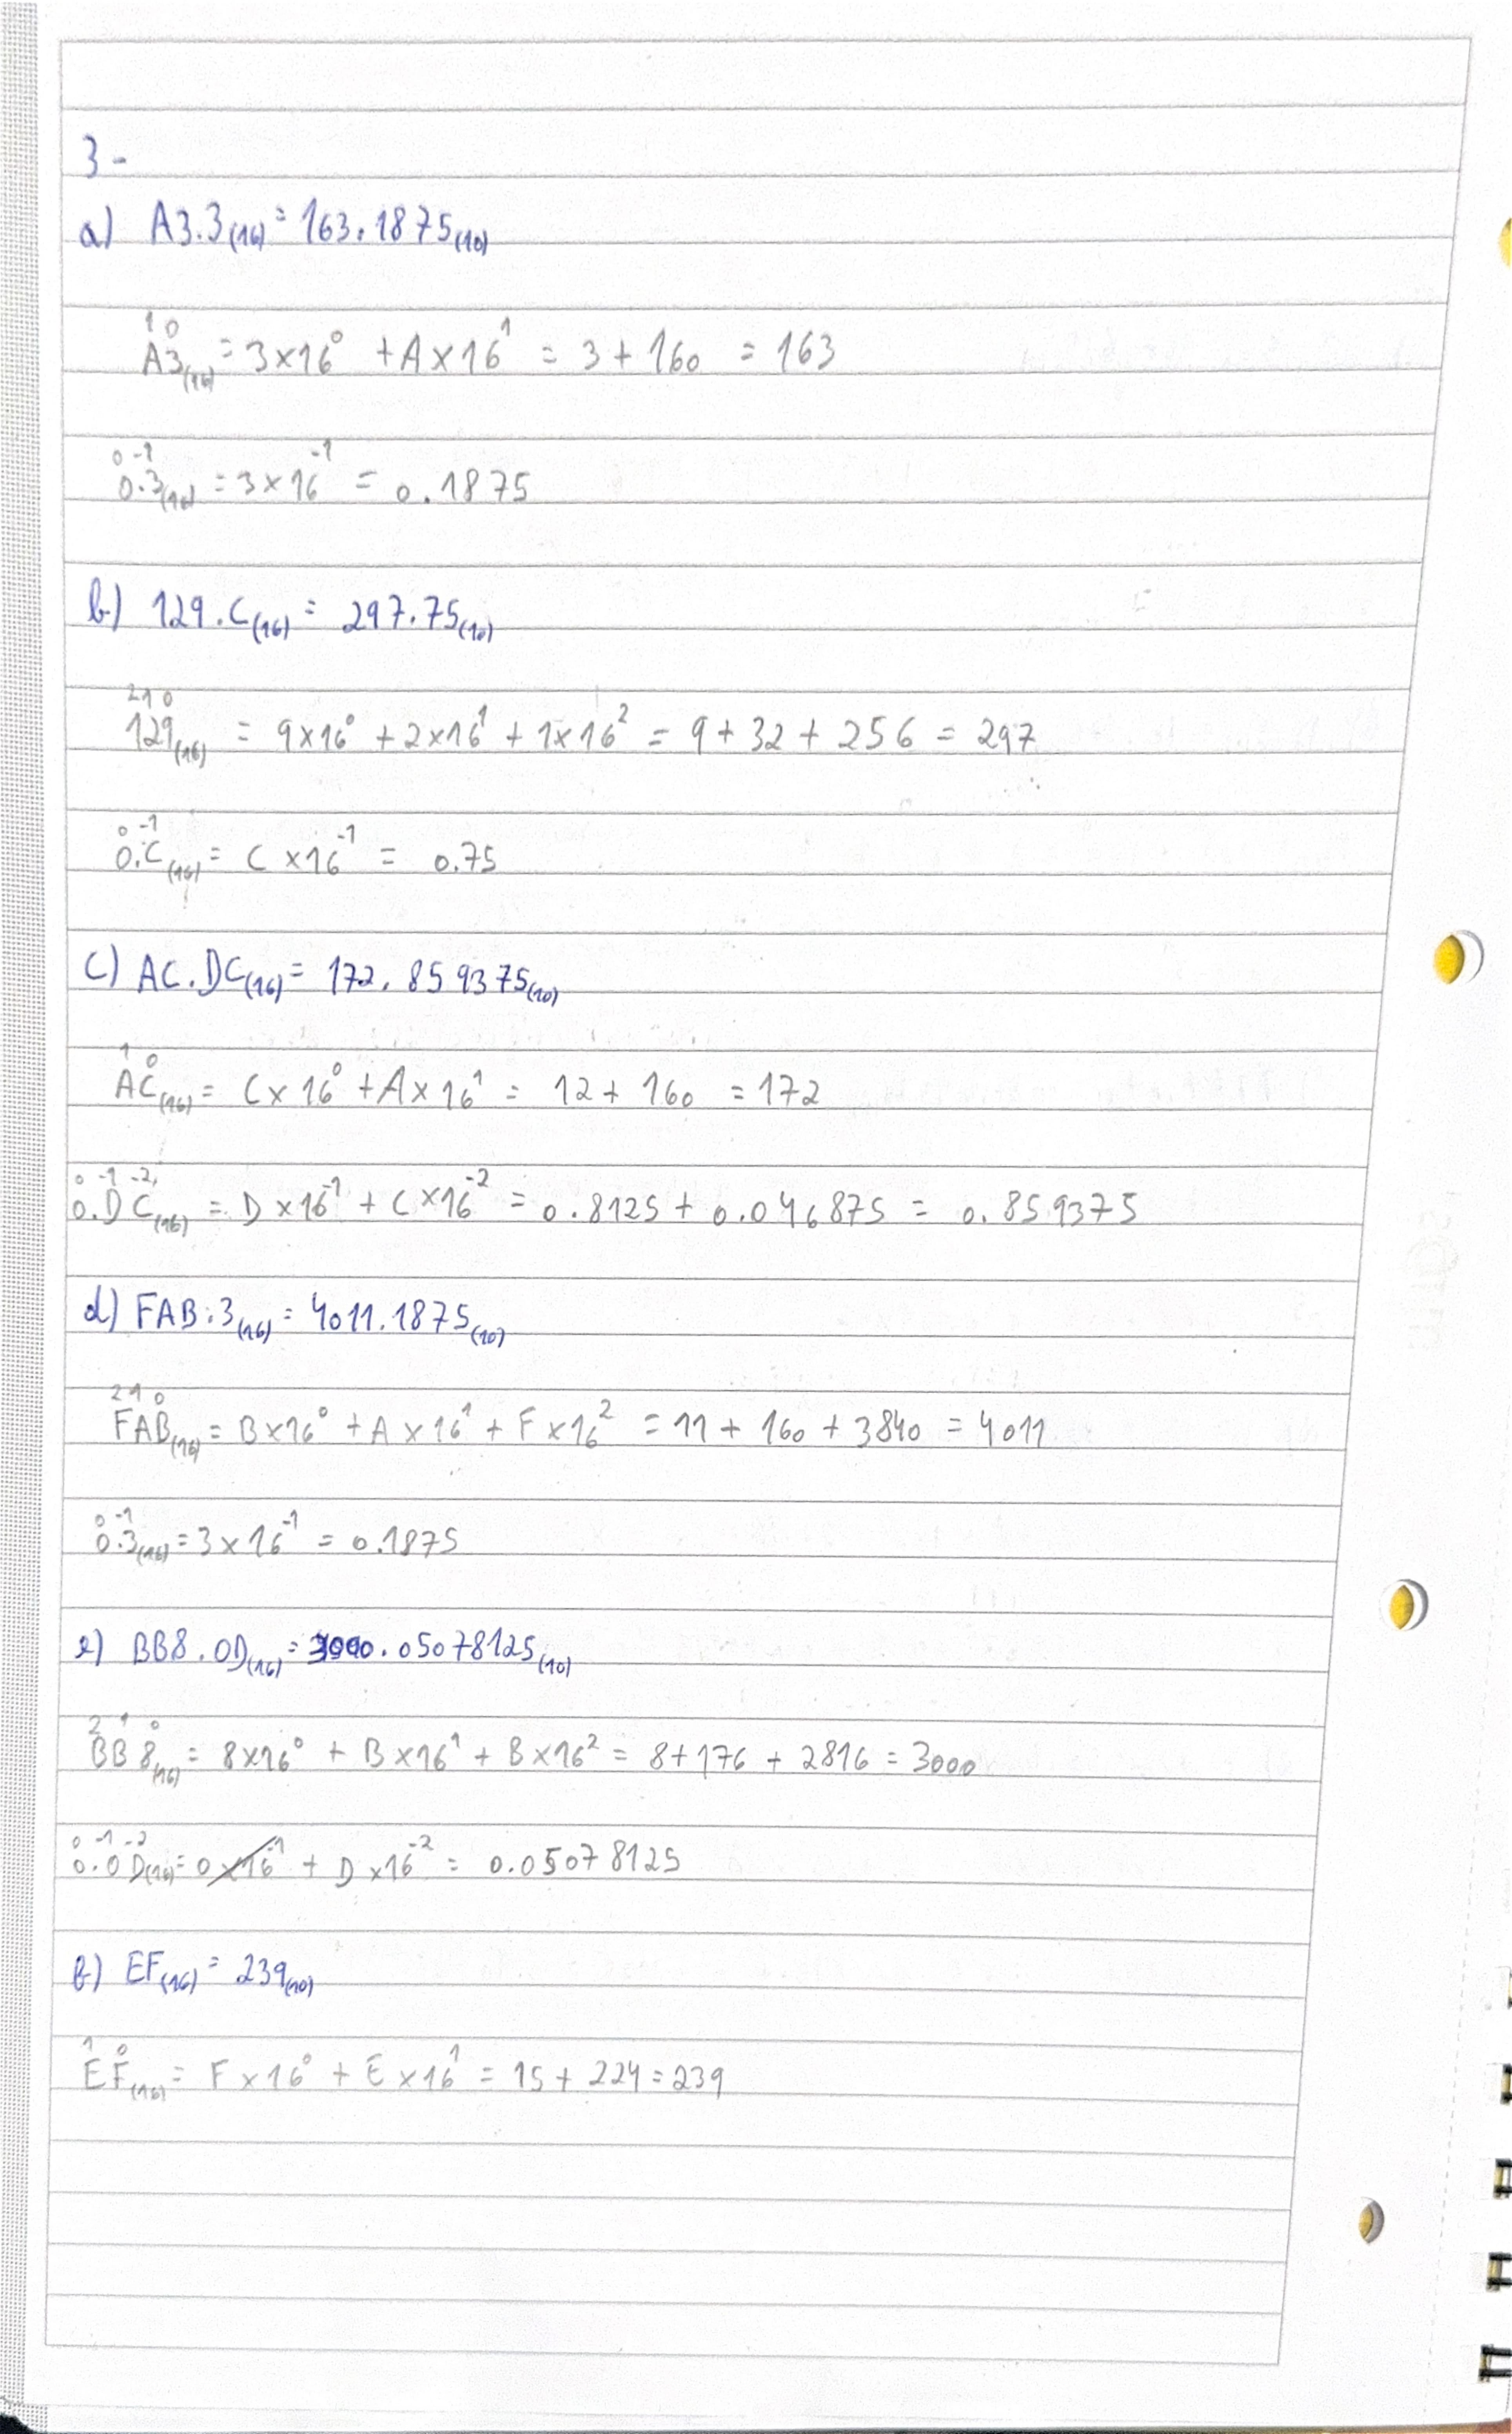 3-
a) A3.3(16) = 163.1875(10)
1 0
A3(16) = 3×16⁰ + A×16¹ = 3 + 160 = 163
0 -1
0.3(16) = 3×16⁻¹ = 0.1875
b) 129.C(16) = 297.75(10)
2 1 0
129(16) = 9×16⁰ + 2×16¹ + 1×16² = 9 + 32 + 256 = 297
0 -1
0.C(16) = C×16⁻¹ = 0.75
c) AC.DC(16) = 172.859375(10)
1 0
AC(16) = C×16⁰ + A×16¹ = 12 + 160 = 172
0 -1 -2
0.DC(16) = D×16⁻¹ + C×16⁻² = 0.8125 + 0.046875 = 0.859375
d) FAB.3(16) = 4011.1875(10)
2 1 0
FAB(16) = B×16⁰ + A×16¹ + F×16² = 11 + 160 + 3840 = 4011
0 -1
0.3(16) = 3×16⁻¹ = 0.1875
e) BB8.0D(16) = 3000.05078125(10)
2 1 0
BB8(16) = 8×16⁰ + B×16¹ + B×16² = 8 + 176 + 2816 = 3000
0 -1 -2
0.0D(16) = 0×16⁻¹ + D×16⁻² = 0.05078125
f) EF(16) = 239(10)
1 0
EF(16) = F×16⁰ + E×16¹ = 15 + 224 = 239